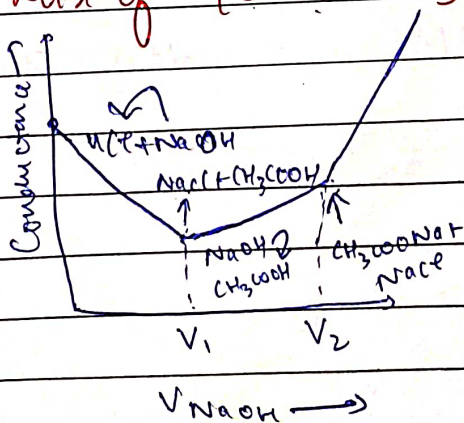 Conductance →
HCl+NaOH
NaCl+CH₃COOH
NaOH
CH₃COOH
CH₃COONa+
NaCl
V₁
V₂
V NaOH →